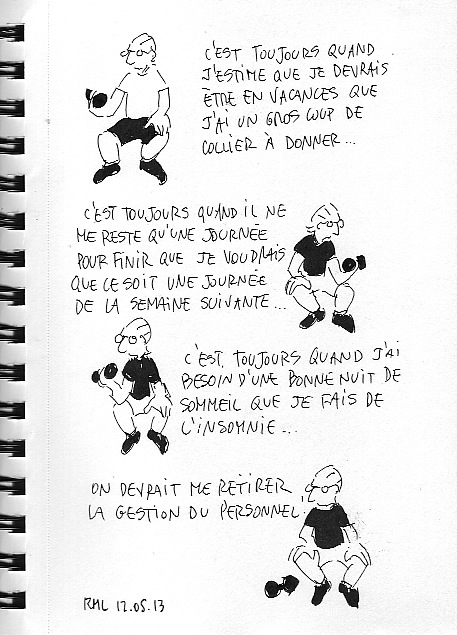 C'EST TOUJOURS QUAND
J'ESTIME QUE JE DEVRAIS
ÊTRE EN VACANCES QUE
J'AI UN GROS COUP DE
COLLIER À DONNER...
C'EST TOUJOURS QUAND IL NE
ME RESTE QU'UNE JOURNÉE
POUR FINIR QUE JE VOUDRAIS
QUE CE SOIT UNE JOURNÉE
DE LA SEMAINE SUIVANTE...
C'EST TOUJOURS QUAND J'AI
BESOIN D'UNE BONNE NUIT DE
SOMMEIL QUE JE FAIS DE
L'INSOMNIE...
ON DEVRAIT ME RETIRER
LA GESTION DU PERSONNEL!
RML 12.05.13